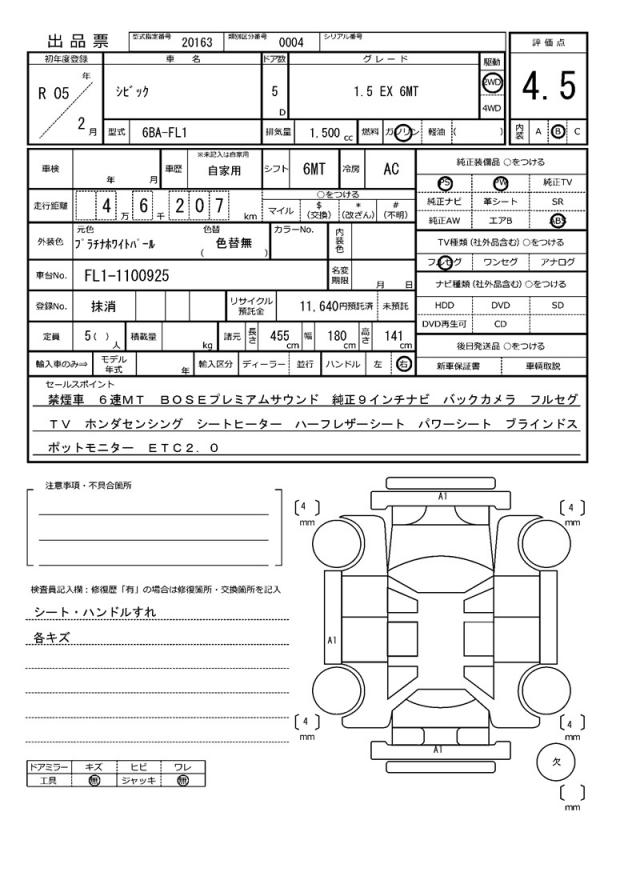 出品票
型式指定番号 20163 類別区分番号 0004 シリアル番号
評価点
4.5
内装 A B C
初年度登録 車名 ドア数 グレード 駆動
R 05 年 2 月
ｼﾋﾞｯｸ
5 D
1.5 EX 6MT
2WD
4WD
型式 6BA-FL1 排気量 1.500 cc 燃料 ガソリン 軽油 ( )
車検 年 月 車歴 ※未記入は自家用 自家用 シフト 6MT 冷房 AC
走行距離 4 万 6 千 2 0 7 km
○をつける
マイル $ (交換) * (改ざん) # (不明)
外装色 元色 ﾌﾟﾗﾁﾅﾎﾜｲﾄﾊﾟｰﾙ 色替 ( 色替無 ) カラーNo. 内装色
車台No. FL1-1100925 名変期限 月 日
登録No. 抹消 リサイクル預託金 11,640円預託済 未預託
定員 5( ) 人 積載量 kg 諸元 長さ 455 cm 幅 180 cm 高さ 141 cm
輸入車のみ⇒ モデル年式 年 輸入区分 ディーラー 並行 ハンドル 左 右
純正装備品 ○をつける
PS PW 純正TV
純正ナビ 革シート SR
純正AW エアB ABS
TV種類 (社外品含む) ○をつける
フルセグ ワンセグ アナログ
ナビ種類 (社外品含む) ○をつける
HDD DVD SD
DVD再生可 CD
後日発送品 ○をつける
新車保証書 車輌取説
セールスポイント
禁煙車 ６速MT BOSEプレミアムサウンド 純正９インチナビ バックカメラ フルセグ
TV ホンダセンシング シートヒーター ハーフレザーシート パワーシート ブラインドス
ポットモニター ETC2.0
注意事項・不具合箇所
検査員記入欄：修復歴「有」の場合は修復箇所・交換箇所を記入
シート・ハンドルすれ
各キズ
ドアミラー キズ ヒビ ワレ
工具 無 ジャッキ 無
A1
[ 4 ] mm
[ 4 ] mm
A1
[ 4 ] mm
[ 4 ] mm
A1
欠
[ ] mm